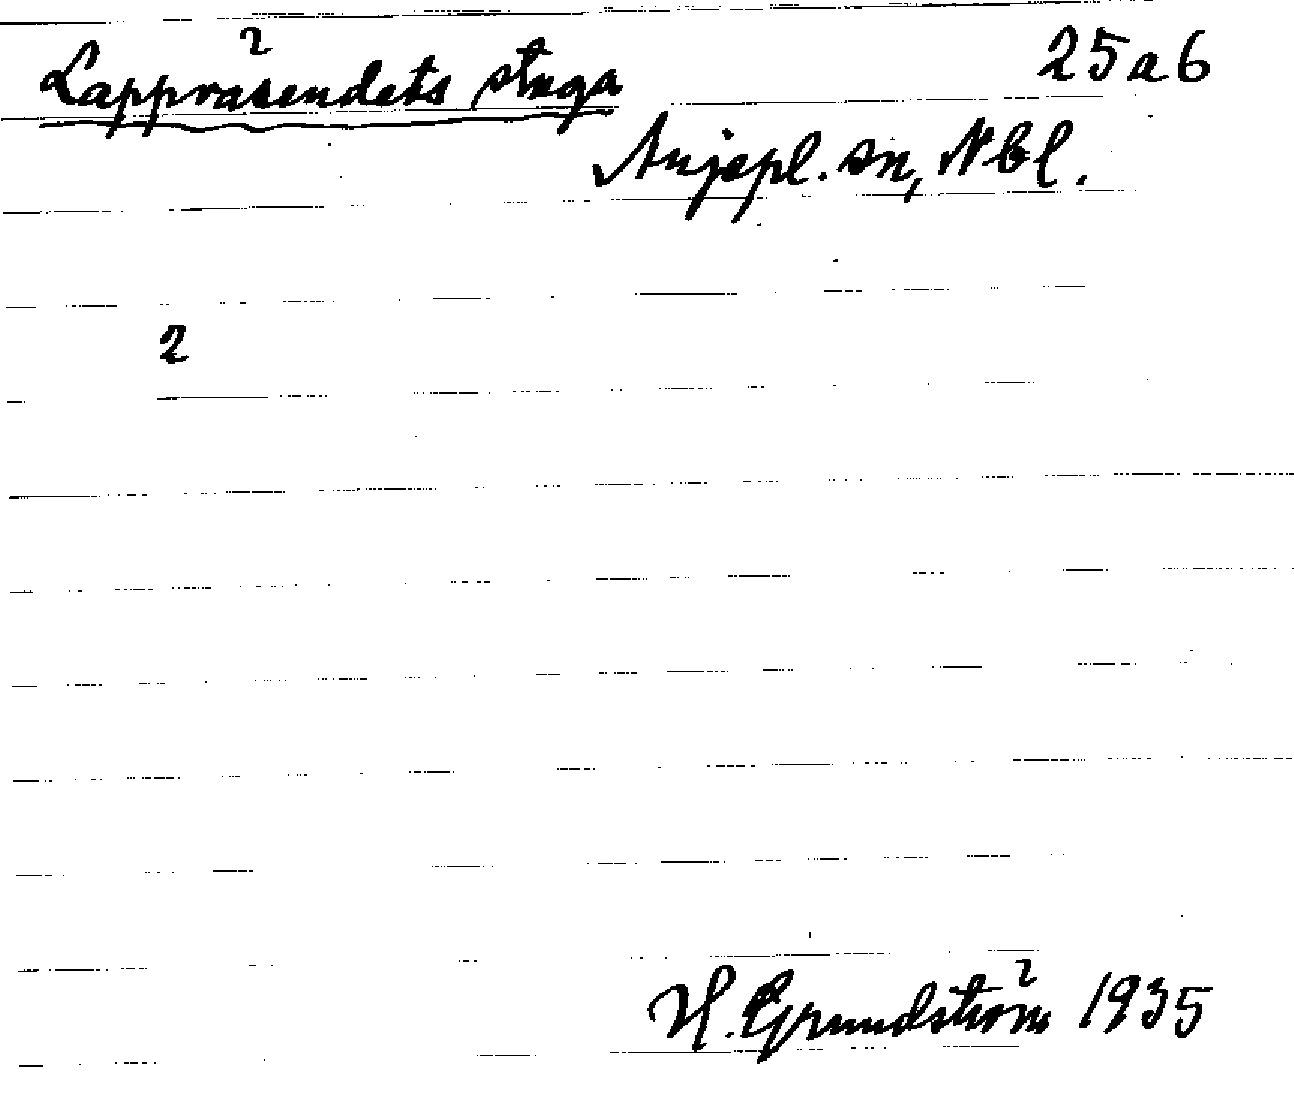 Lappväsendets stuga 25a6
Arjepl. sn, Nbl.
2
H. Grundström 1935